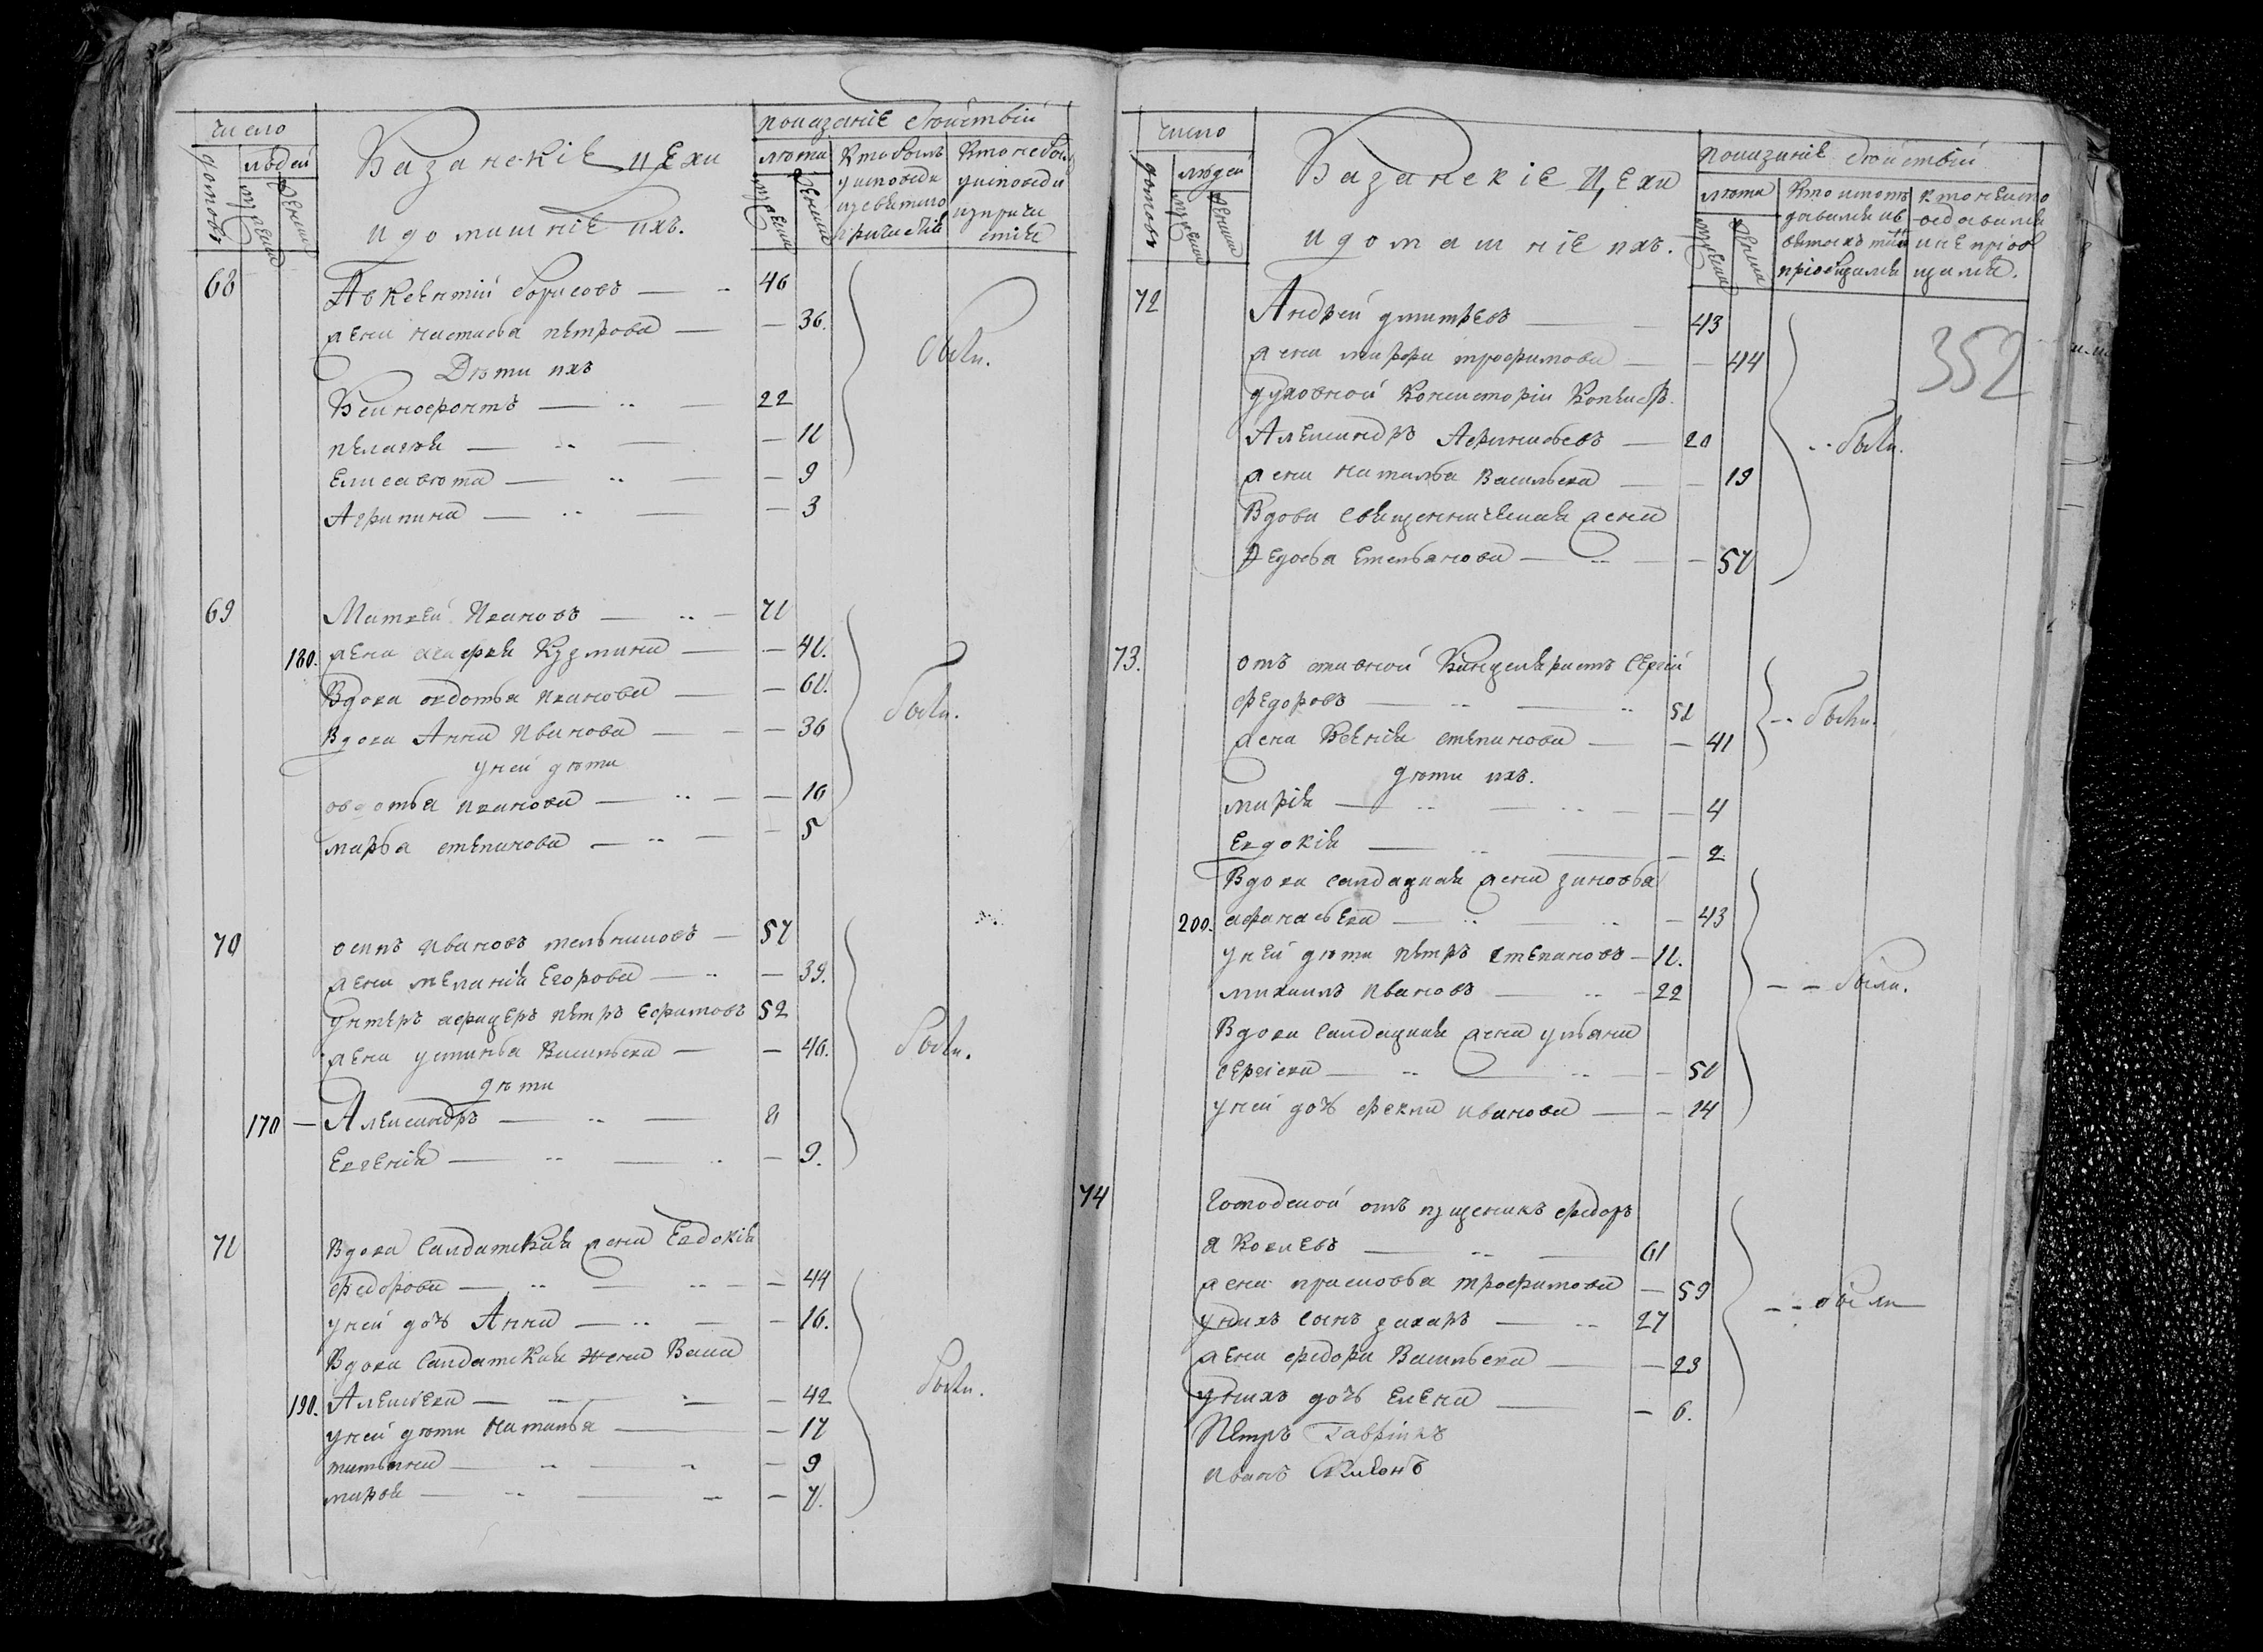 число
показаніе действій
домовъ
людей
мужеска
женска
Казанскіе цехи
и домашніе ихъ.
лета
мужеска
женска
Кто былъ
у исповеди
и святого
причастія
Кто не былъ
у исповеди
и причастія
68 Авксентій Борисовъ — 46
жена Настасья Петрова — 36.
Дети ихъ
Ксинофонтъ — 22
Пелагея — 11
Елисавета — 9
Агрипина — 3
были.
69 Матвей Ивановъ — 71
180. жена Кузмина — 41.
Вдова овдотья Иванова — 61.
Вдова Анна Иванова — 36
у ней дети
овдотья Иванова — 16
марья степанова — 5
были.
70 осипъ Ивановъ мельниковъ — 57
жена меланія Егорова — 39.
Унтеръ афицеръ Петръ Ефимовъ 52
жена устинья Васильева — 46.
дети
170 — Александръ — 8
Евгенія — 9.
были.
71 Вдова салдатская жена Евдокія
Федорова — 44
у ней дочь Анна — 16.
Вдова салдатская жена Васса
190. Алексеева — 42
у ней дети Наталья — 17
татьяна — 9
марья — 7.
были.
число
показаніе действій
домовъ
людей
мужеска
женска
Казанскіе цехи
и домашніе ихъ.
лета
мужеска
женска
72 Андрей дмитревъ — 43
жена марфа трофимова — 44
духовной Консисторіи Копеистъ
Александръ Афанасьевъ — 20
жена Наталья Васильева — 19
Вдова священническая жена
Федосья Емельянова — 51
были.
352
73. отъ ставной Канцеляристъ Сергій
Федоровъ — 51
жена Ксенія степанова — 41
дети ихъ.
марія — 4
Евдокія — 2
были.
Вдова салдацкая жена зиновья
200. афанасьева — 43
у ней дети петръ степановъ — 11.
михаилъ Ивановъ — 22
Вдова салдацкая жена ульяна
сергіева — 51
у ней дочь фекла иванова — 14
были.
74 Господской отъ пущеникъ федоръ
Яковлевъ — 61
жена прасковья трофимова — 59
у нихъ сынъ захаръ — 27
жена федора Васильева — 23
у нихъ дочь Елена — 6.
были
Петръ Гавріилъ
Иванъ